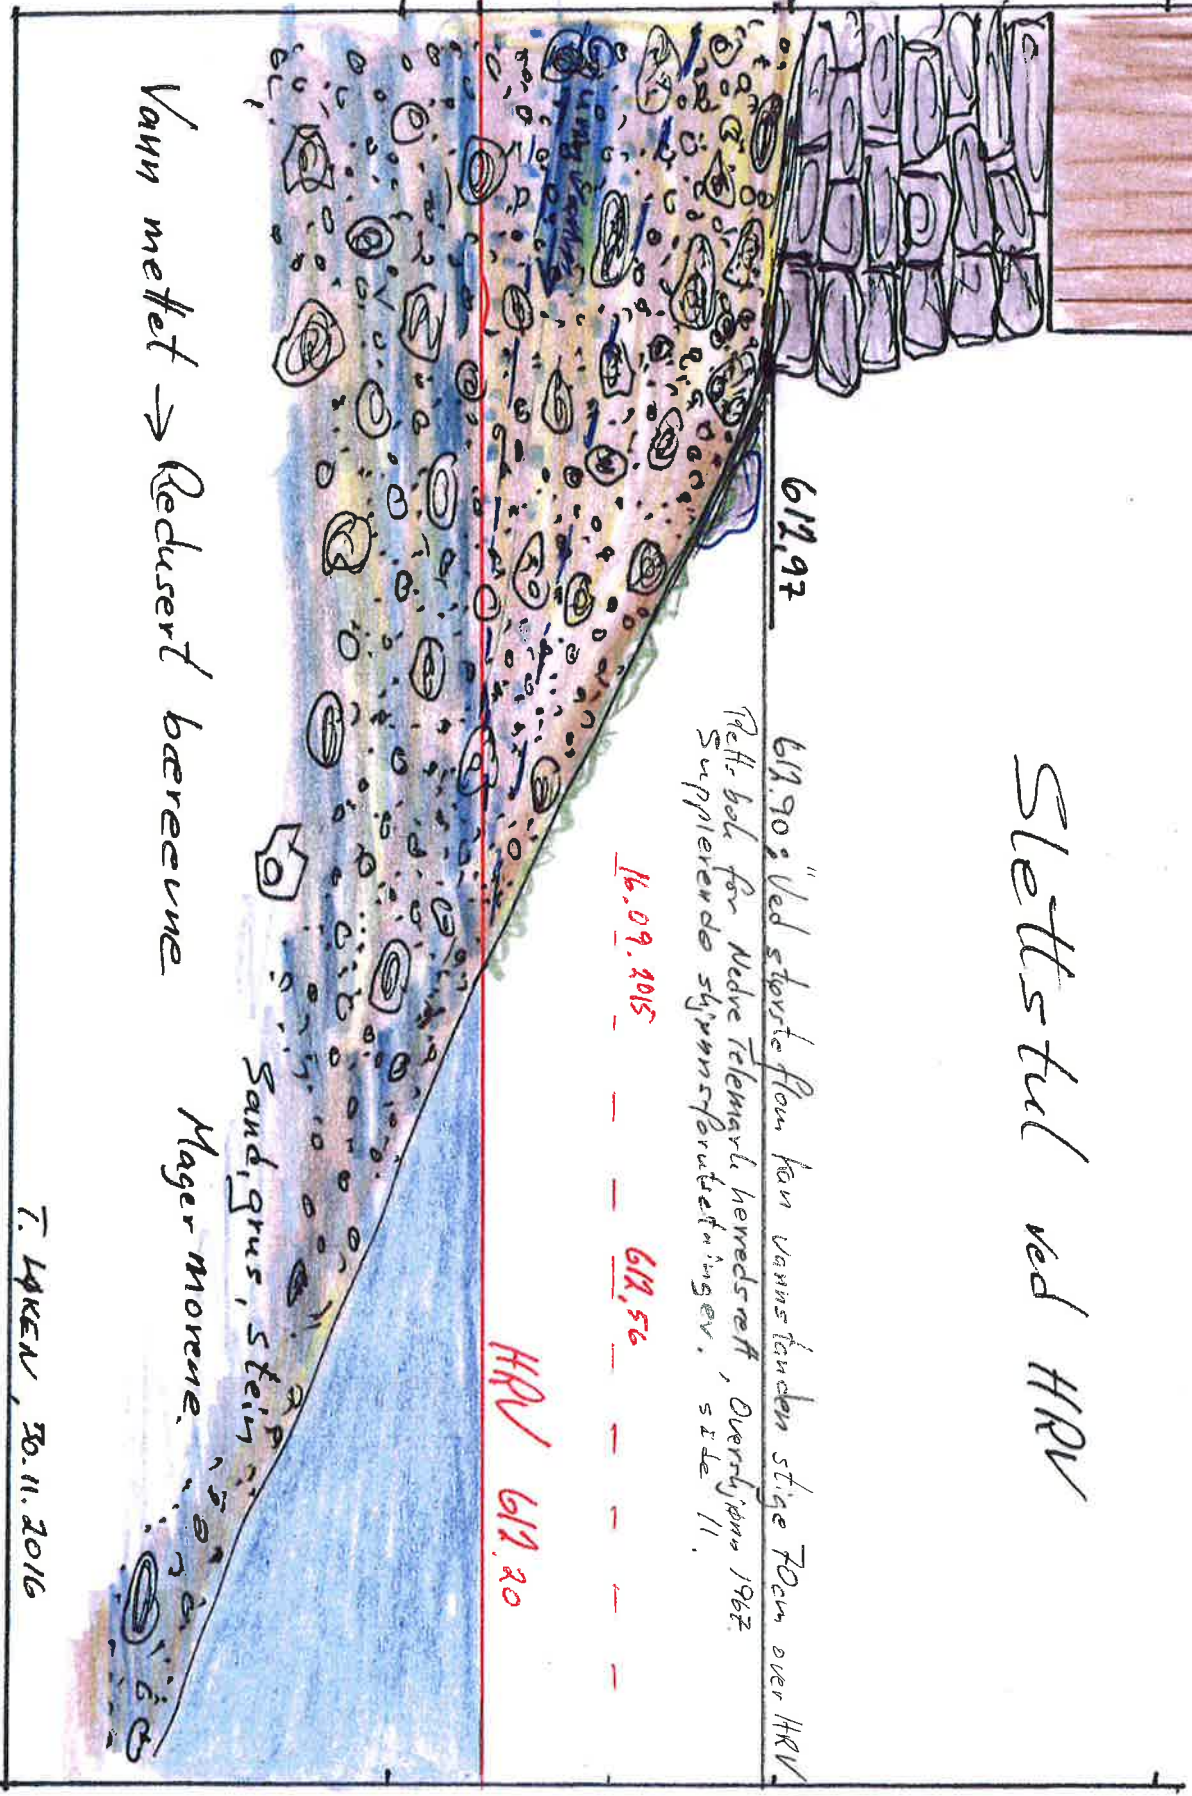 Slettstul ved HRV
612,97
612.90: "Ved største flom kan vannstanden stige 70cm over HRV
Rettsbok for Nedre Telemark herredsrett, Overskjønn 1967.
Supplerende skjønnsforutsetninger. side 11.
16.09.2015
612,56
HRV 612.20
Sand, grus, stein
Mager morene.
Vann mettet → Redusert bæreevne
T. LAKEN, 30.11.2016